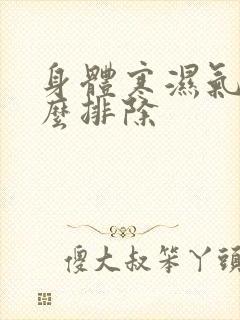 身體寒濕氣
麼排除
傻大叔笨丫頭